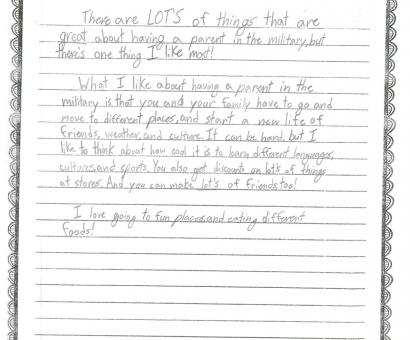 There are LOT'S of things that are
great about having a parent in the military, but
there's one thing I like most!
What I like about having a parent in the
military is that you and your family have to go and
move to different places, and start a new life of
friends, weather, and culture. It can be hard, but I
like to think about how cool it is to learn different languages,
cultures, and sports. You also get discounts on lot's of things
at stores. And you can make lot's of friends, too!
I love going to fun places, and eating different
foods!